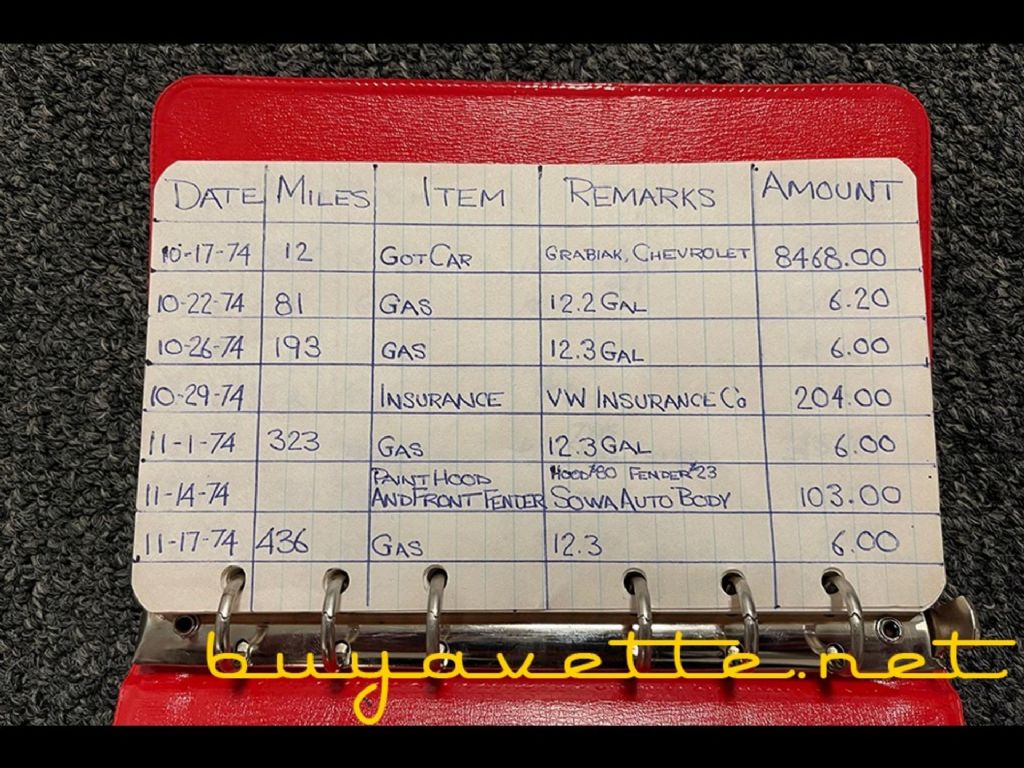 DATE MILES ITEM REMARKS AMOUNT
10-17-74 12 GOT CAR GRABIAK, CHEVROLET 8468.00
10-22-74 81 GAS 12.2 GAL 6.20
10-26-74 193 GAS 12.3 GAL 6.00
10-29-74 INSURANCE VW INSURANCE Co 204.00
11-1-74 323 GAS 12.3 GAL 6.00
PAINT HOOD HOOD $80 FENDER $23
11-14-74 AND FRONT FENDER SOWA AUTO BODY 103.00
11-17-74 436 GAS 12.3 6.00
buyavette.net